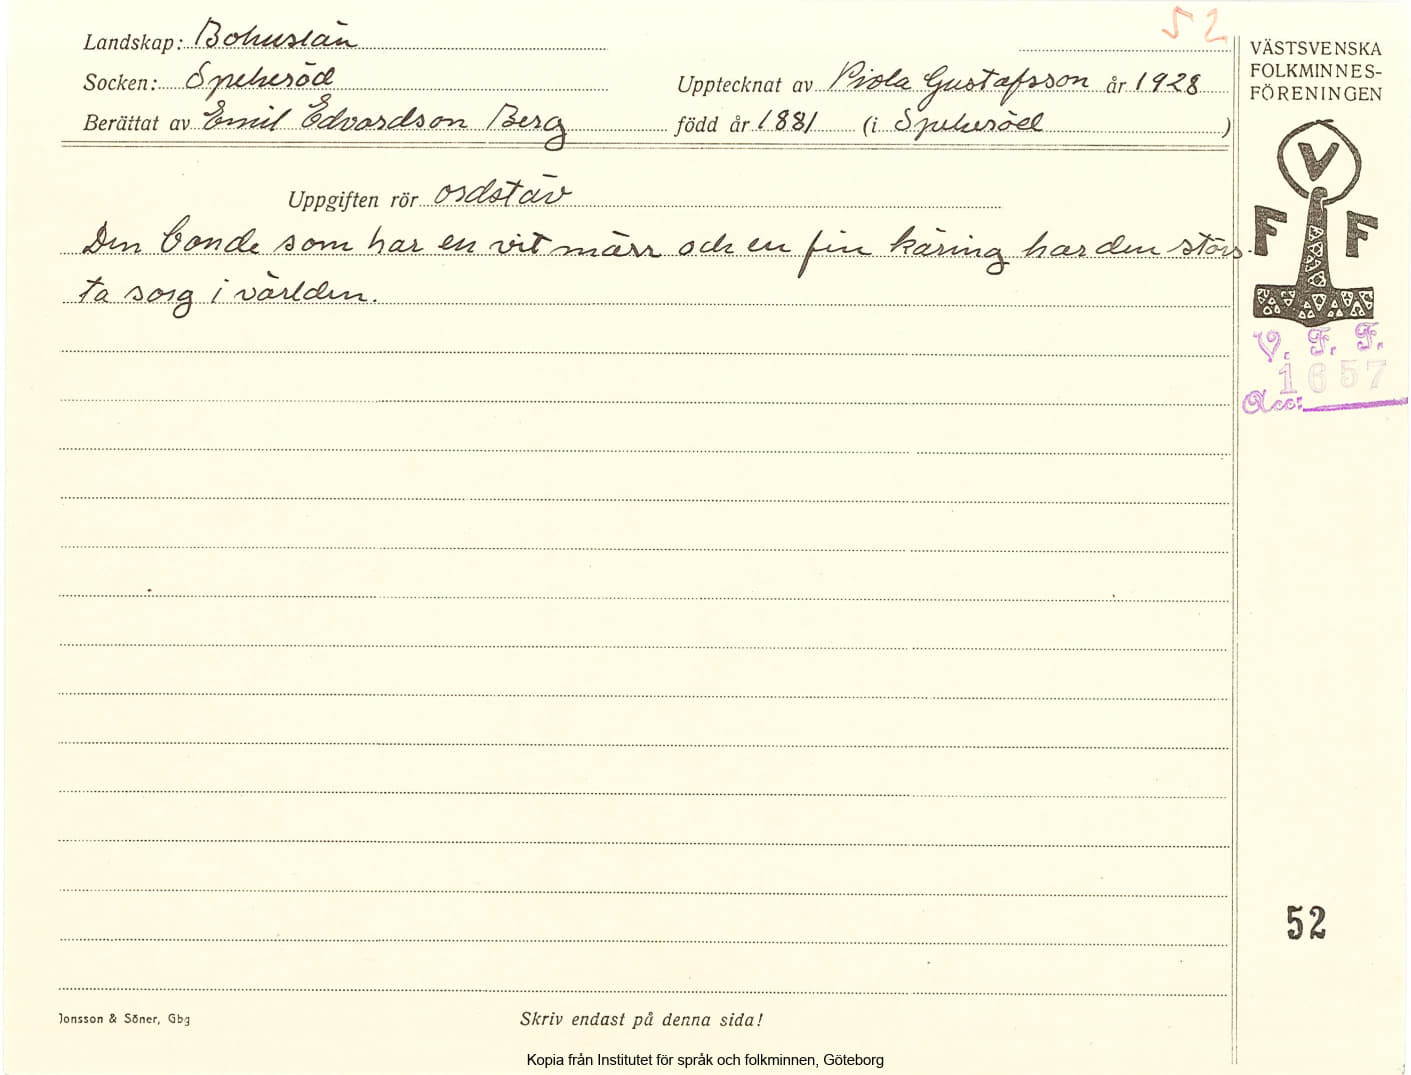 52
Landskap: Bohuslän
Socken: Spekeröd
Upptecknat av Viola Gustafsson år 1928
Berättat av Emil Edvardson Berg
född år 1881 (i Spekeröd)
Uppgiften rör ordstäv
Den bonde som har en vit märr och en fin käring har den störs-
ta sorg i världen.
VÄSTSVENSKA
FOLKMINNES-
FÖRENINGEN
V
F F
V. F. F.
1657
Acc:
52
Jonsson & Söner, Gbg
Skriv endast på denna sida!
Kopia från Institutet för språk och folkminnen, Göteborg